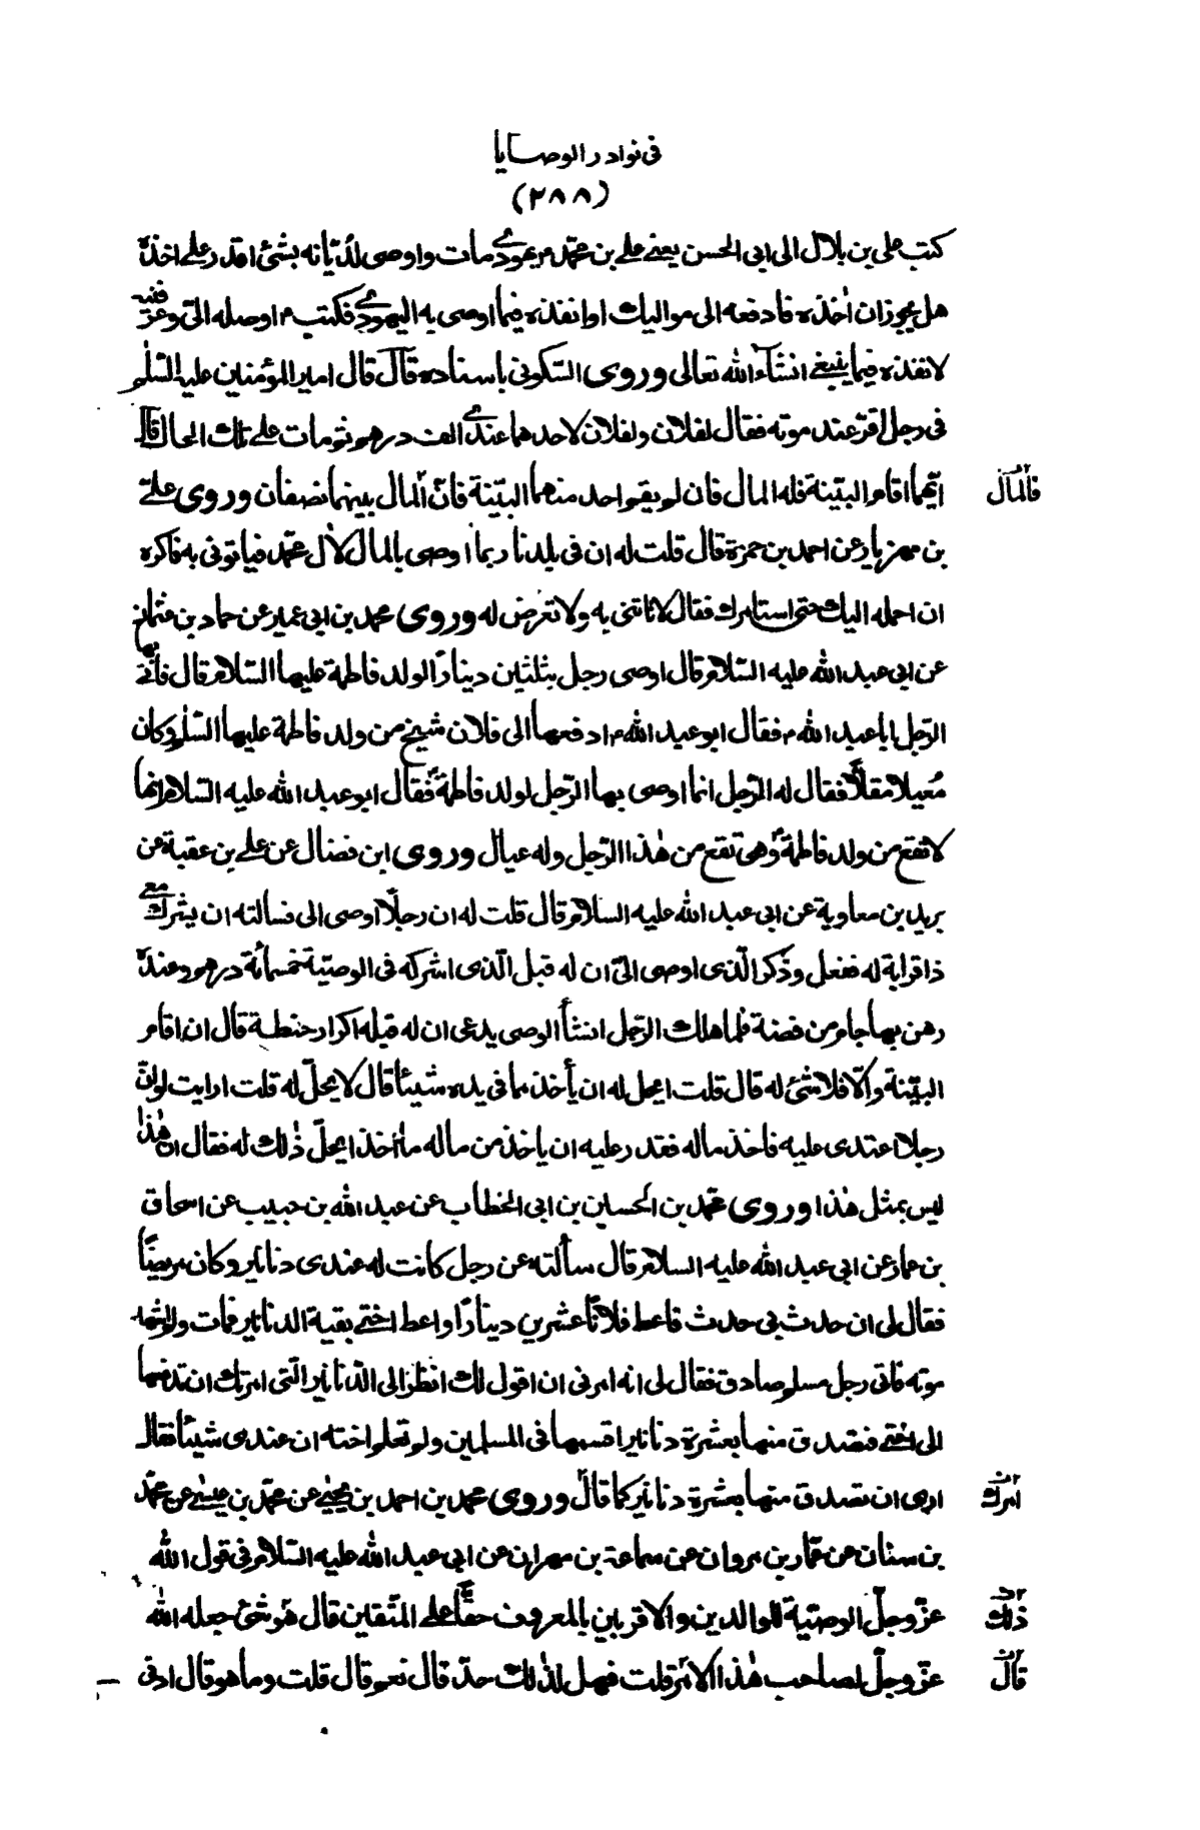 في نوادر الوصايا
(٢٨٨)
كتب علي بن بلال الى ابي الحسن يعني علي بن محمد م يهودي مات واوصى لديّانه بشئ اقدر على اخذه
هل يجوز ان اخذه فادفعه الى مواليك او انفذه فيما اوصى به اليهودي فكتب م اوصله اليّ وعرّفنيه
لانفذه فيما ينبغي انشآء الله تعالى وروى السّكوني باسناده قال قال امير المؤمنين عليه السّلم
في رجل اقرّ عند موته فقال لفلان ولفلان لاحدهما عندي الف درهم ثم مات على تلك الحال قال
ايّهما اقام البيّنة فله المال فان لم يقم احد منهما البيّنة فانّ المال بينهما نصفان وروى علي
فالمال
بن مهزيار عن احمد بن حمزة قال قلت له ان في بلدنا ربما اوصى بالمال لآل محمد فياتوني به فاكره
ان احمله اليك حتى استامرك فقال لا تاتني به ولا تعرض له وروى محمد بن ابي عمير عن حماد بن عثمان
عن ابي عبد الله عليه السّلام قال اوصى رجل بثلثين دينارًا لولد فاطمة عليها السّلام قال فأتى بها
الرّجل ابا عبد الله م فقال ابو عبد الله م ادفعها الى فلان شيخ من ولد فاطمة عليها السّلم وكان
مُعيلا مقلاًّ فقال له الرّجل انما اوصى بها الرّجل لولد فاطمة فقال ابو عبد الله عليه السّلام انها
لا تقع من ولد فاطمة وهي تقع من هذا الرّجل وله عيال وروى ابن فضال عن علي بن عقبة عن
بريد بن معاوية عن ابي عبد الله عليه السلام قال قلت له ان رجلًا اوصى الى فسالته ان يشرك معي
ذا قرابة له ففعل وذكر الّذى اوصى اليّ ان له قبل الّذى اشركه في الوصيّة خمسمائة درهم وعنده
رهن بها جام من فضة فلما هلك الرّجل انشأ الوصى يدعى ان له قبله اكرار حنطة قال ان اقام
البيّنة والّا فلا شئ له قال قلت ايحل له ان يأخذ مما في يده شيئا قال لا يحلّ له قلت ارايت لو انّ
رجلا اعتدى عليه فاخذ ماله فقدر عليه ان ياخذ من ماله ما اخذ ايحلّ ذلك له فقال ان هذا
ليس بمثل هذا وروى محمد بن الحسين بن ابي الخطاب عن عبد الله بن حبيب عن اسحاق
بن عمار عن ابي عبد الله عليه السلام قال سألته عن رجل كانت له عندى دنانير وكان مريضًا
فقال لى ان حدث بى حدث فاعط فلانًا عشرين دينارًا واعط اختي بقية الدنانير فمات ولم اشهد
موته فاتى رجل مسلم صادق فقال لى انه امرنى ان اقول لك انظر الى الدّنانير الّتى امرتك ان تدفعها
الى اختي فتصدق منها بعشرة دنانير اقسمها في المسلمين ولم تعلم اخته ان عندى شيئا فقال
ارى ان تصدق منها بعشرة دنانير كما قال وروى محمد بن احمد بن يحيى عن محمّد بن عيسى عن محمّد
امرك
بن سنان عن عمّار بن مروان عن سماعة بن مهران عن ابي عبد الله عليه السّلام في قول الله
عزّ وجلّ الوصيّة للوالدين والاقربين بالمعروف حقًّا على المتّقين قال هو شئ جعله الله
ذلك
عزّ وجلّ لصاحب هذا الامر قلت فهل لذلك حدّ قال نعم قال قلت وما هو قال ادنى
قال